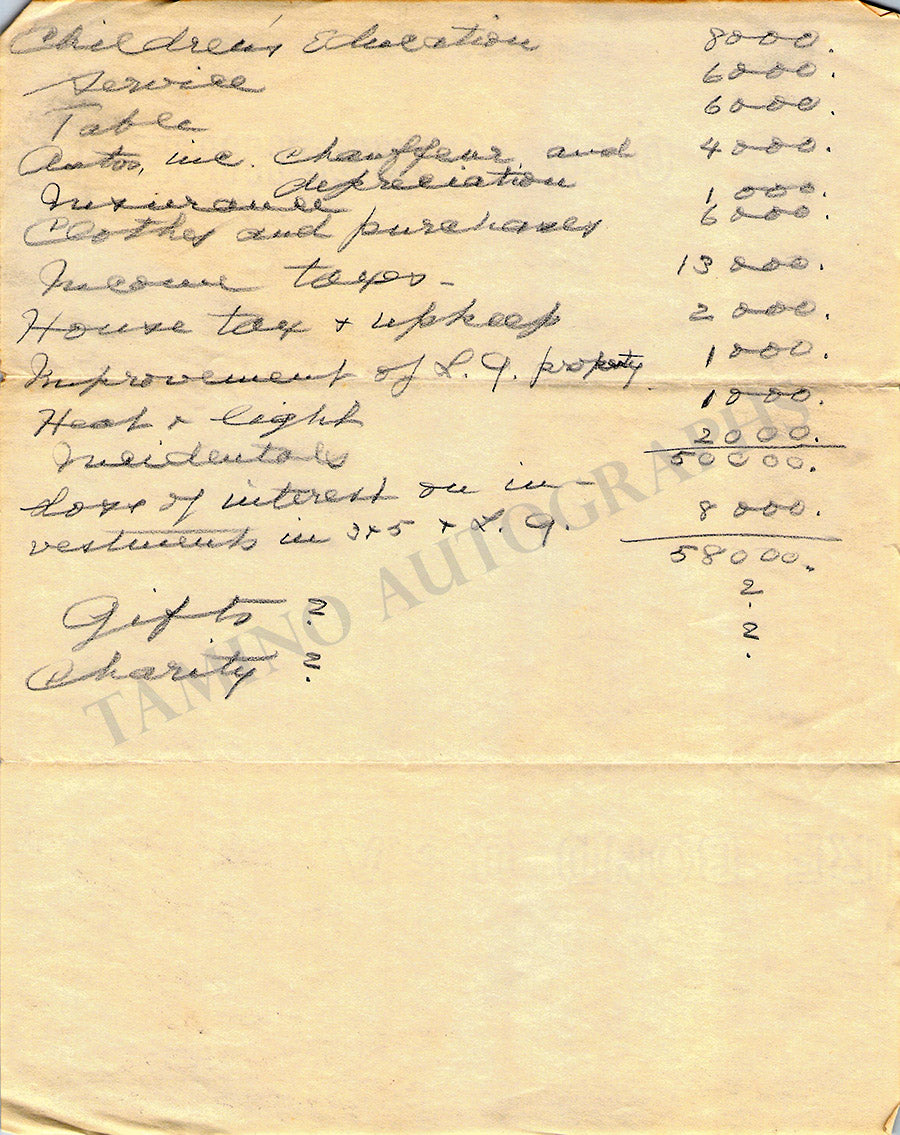 Children's Education 8000.
Service 6000.
Table 6000.
Autos, inc. chauffeur, and 4000.
depreciation
Insurance 1000.
Clothes and purchases 6000.
Income taxes - 13000.
House tax + upkeep 2000.
Improvement of L. G. property 1000.
Heat + light 1000.
Incidentals 2000.
50000.
Loss of interest on in- 8000.
vestments in 3x5 + L. G.
58000.
Gifts ? ?
Charity ? ?
TAMINO AUTOGRAPHS